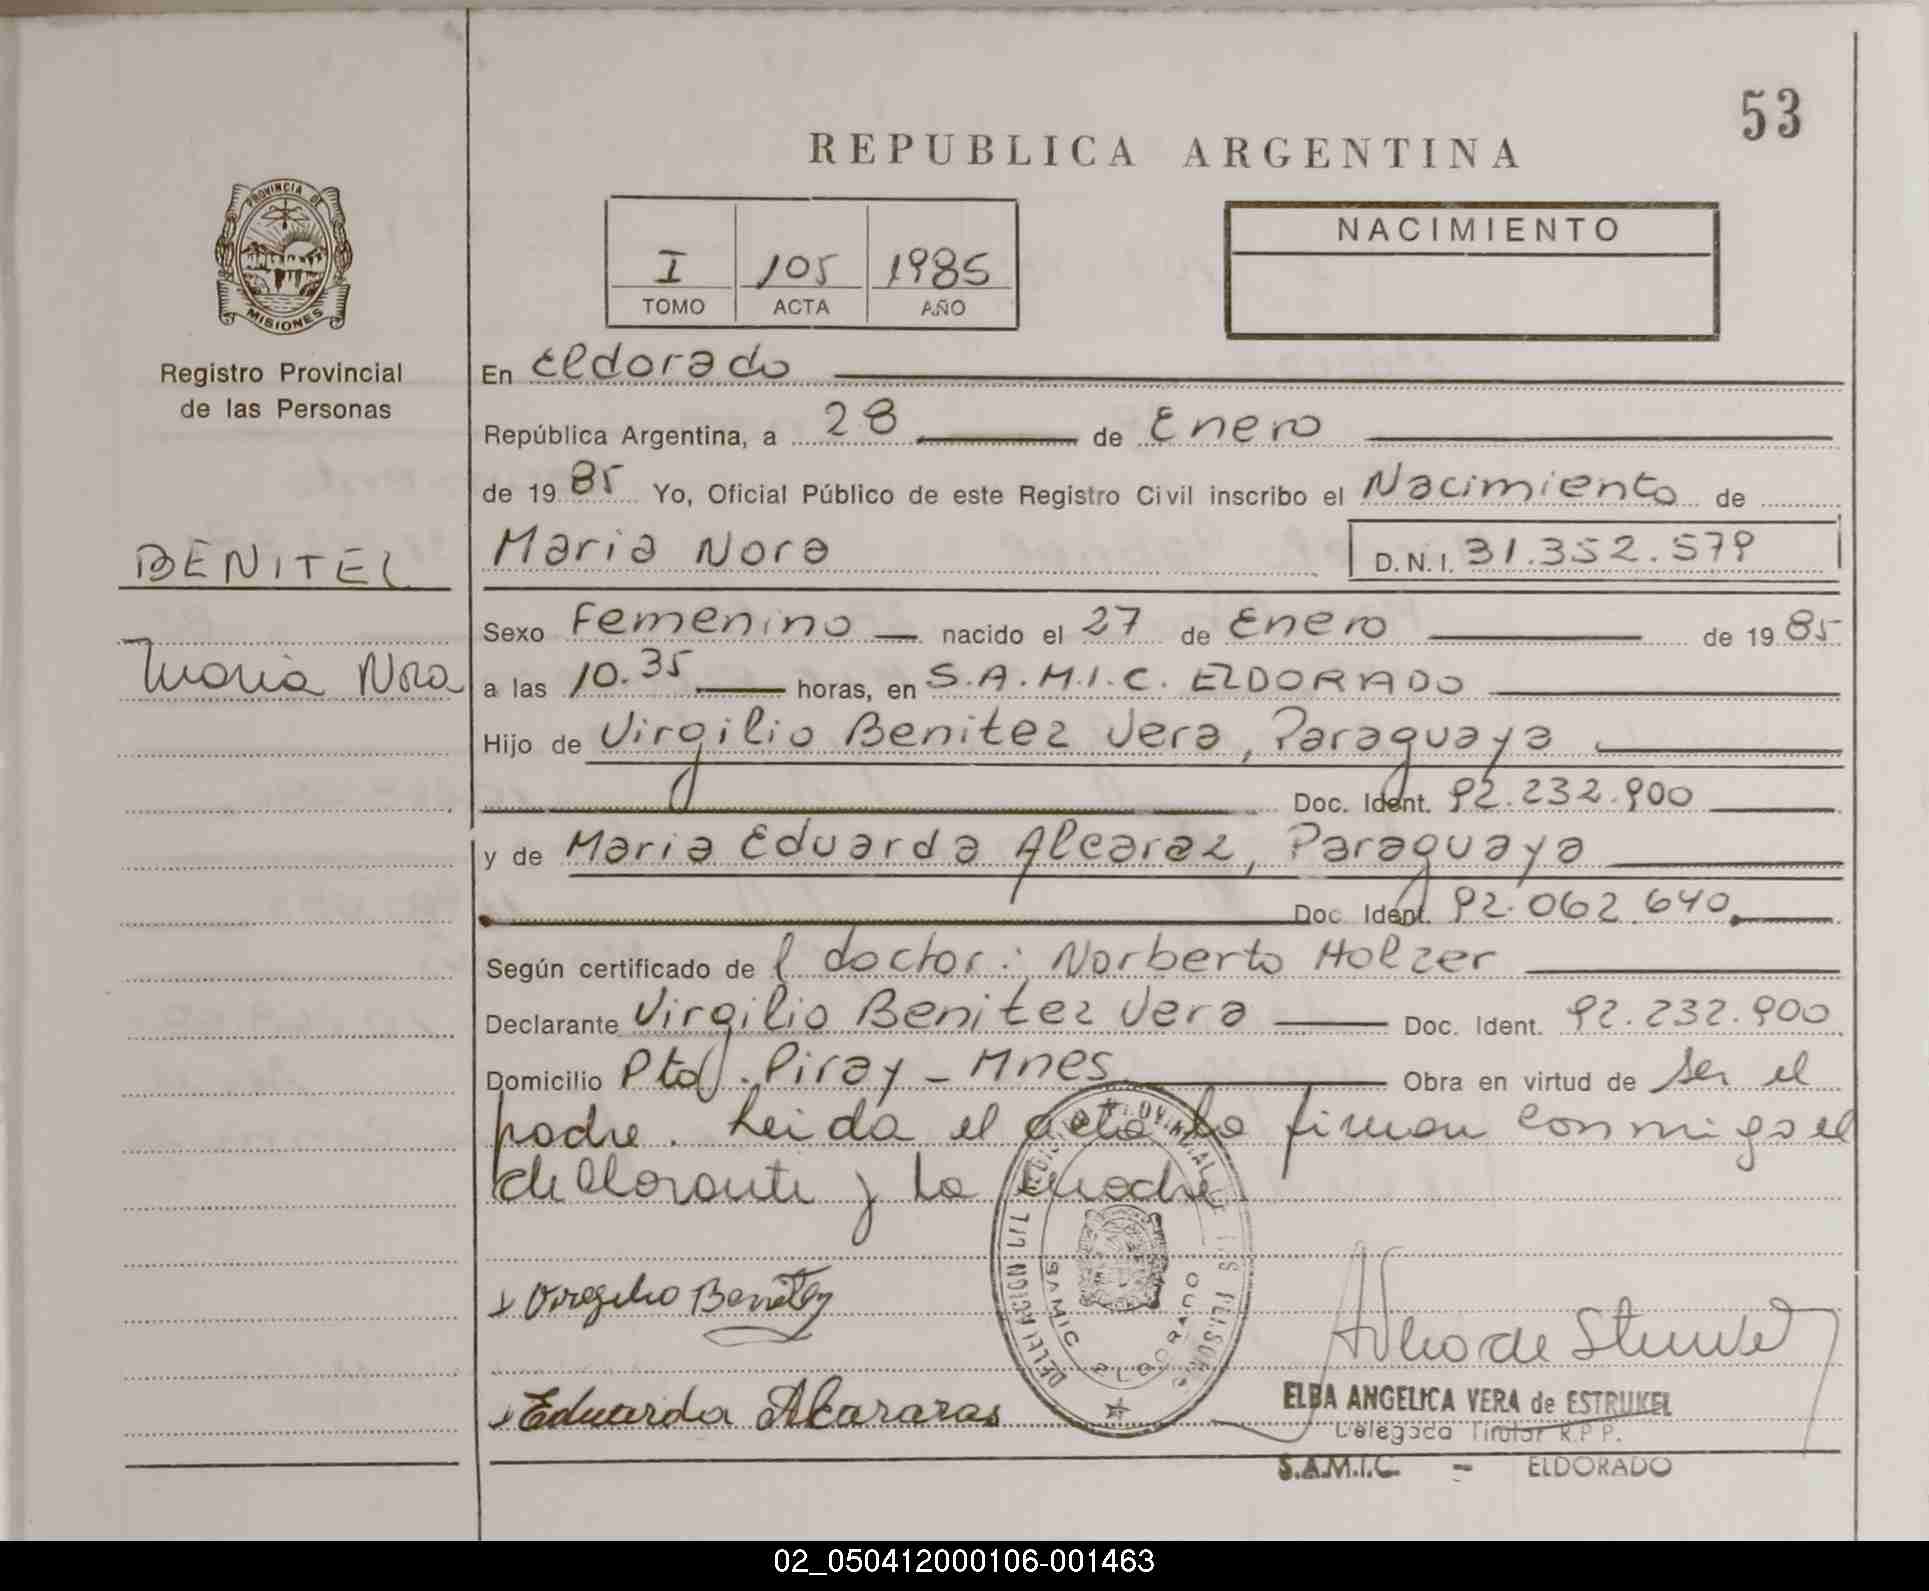 53
REPUBLICA ARGENTINA
PROVINCIA DE
MISIONES
Registro Provincial
de las Personas
I 105 1985
TOMO ACTA AÑO
NACIMIENTO
En Eldorado
República Argentina, a 28 de Enero
de 19 85 Yo, Oficial Público de este Registro Civil inscribo el Nacimiento de
BENITEZ
Maria Nora D.N.I. 31.352.579
Sexo Femenino nacido el 27 de Enero de 19 85
Maria Nora
a las 10.35 horas, en S.A.M.I.C. ELDORADO
Hijo de Virgilio Benitez Vera, Paraguaya
Doc. Ident. 92.232.900
y de Maria Eduarda Alcaraz, Paraguaya
Doc. Ident. 92.062.640
Según certificado de l doctor: Norberto Holzer
Declarante Virgilio Benitez Vera Doc. Ident. 92.232.900
Domicilio Pto. Piray - Mnes Obra en virtud de ser el
padre. Leida el acta la firman conmigo el
declarante y la madre
Virgilio Benitez
Eduarda Alcararas
SAMIC ELDORADO
ELBA ANGELICA VERA de ESTRUKEL
Delegada Titular R.P.P.
S.A.M.I.C. - ELDORADO
02_050412000106-001463